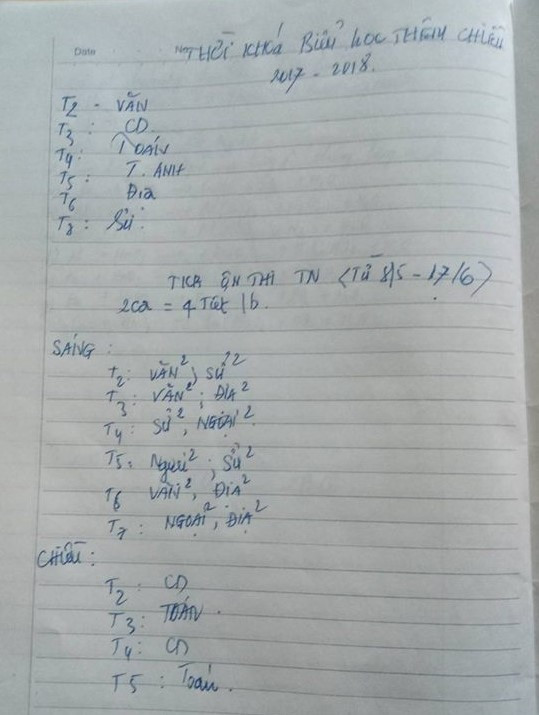 Date No THỜI KHOÁ BIỂU HỌC THÊM CHIỀU
2017 - 2018.
T2 - VĂN
T3 : CD
T4 : TOÁN
T5 : T. ANH
T6 Địa
T8 : Sử :
TKB ÔN THI TN (Từ 8/5 - 17/6)
2ca = 4 Tiết / b.
SÁNG :
T2 : VĂN² ; SỬ²
T3 : VĂN² ; ĐỊA²
T4 : SỬ² , NGOẠI²
T5 : Ngoại² ; SỬ²
T6 VĂN² , ĐỊA²
T7 : NGOẠI² , ĐỊA²
CHIỀU :
T2 : CD
T3 : TOÁN .
T4 : CD
T5 : Toán .